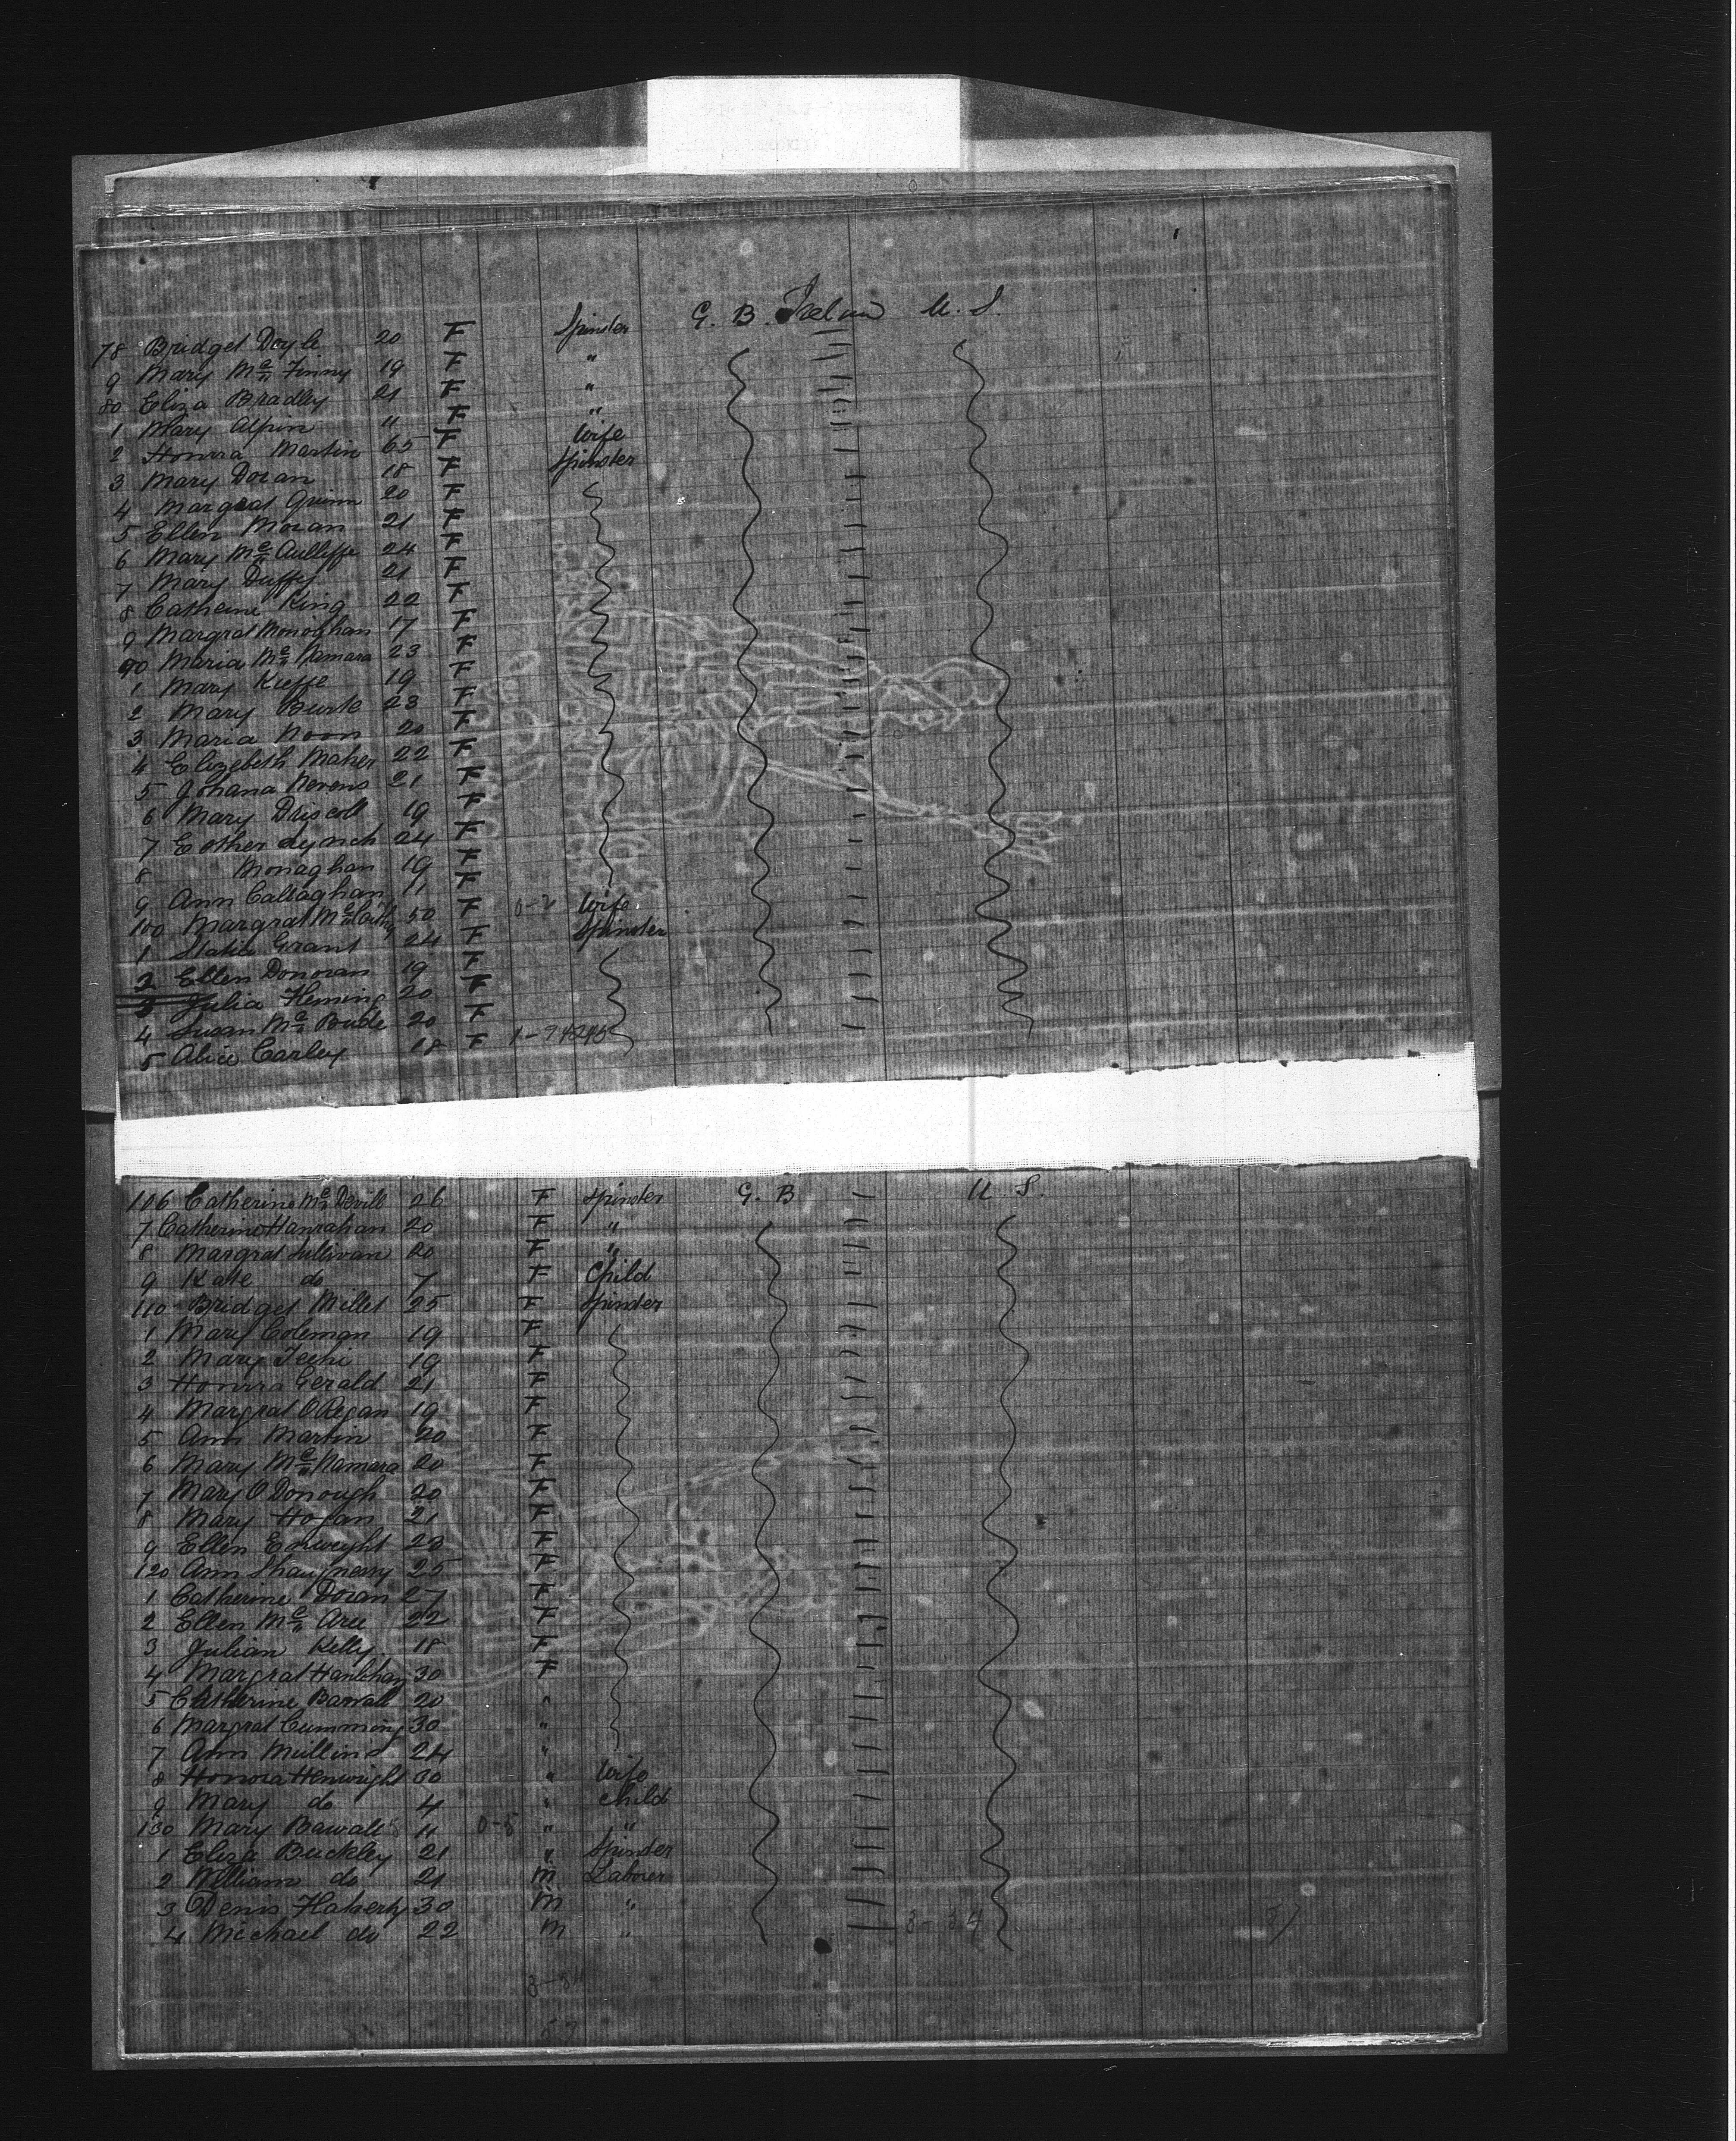 78 Bridget Doyle 20 F Spinster G. B. Ireland U. S.
9 Mary Mc Finny 19 F "
80 Eliza Bradley 21 F "
1 Mary Alpin 11 F "
2 Honora Martin 65 F Wife
3 Mary Doran 18 F Spinster
4 Margrat Quinn 20 F
5 Ellen Moran 21 F
6 Mary Mc Aulliffe 24 F
7 Mary Duffy 21 F
8 Catherine King 22 F
9 Margrat Monoghan 17 F
90 Maria Mc Namara 23 F
1 Mary Kieffe 19 F
2 Mary Burke 23 F
3 Maria Noon 20 F
4 Elizebeth Maher 22 F
5 Johana Nevens 21 F
6 Mary Driscoll 19 F
7 Esther Lynch 24 F
8 Monaghan 19 F
9 Ann Callaghan 11 F
100 Margrat Mc Carthy 50 F Wife
1 Statia Grant 24 F Spinster
2 Ellen Donovan 19 F
3 Julia Fleming 20 F
4 Susan Mc Bride 20 F
5 Alice Carley 18 F
106 Catherine Mc Devill 26 F Spinster G. B U. S.
7 Catherine Hanrahan 20 F "
8 Margrat Sullivan 20 F "
9 Kate do 7 F Child
110 Bridget Millet 25 F Spinster
1 Mary Coleman 19 F
2 Mary 19 F
3 Honora Gerald 21 F
4 Margrat O Regan 19 F
5 Ann Martin 20 F
6 Mary Mc Namara 20 F
7 Mary O Donough 20 F
8 Mary Hogan 21 F
9 Ellen Enweyht 23 F
120 Ann Shaugnessy 25 F
1 Catherine Doran 27 F
2 Ellen Mc 22 F
3 Julian Kelly 18 F
4 Margrat 30 F
5 Catherine Bawall 20 "
6 Margrat Cumming 30 "
7 Ann Mullins 24 "
8 Honora Henwright 30 " Wife
9 Mary do 4 " Child
130 Mary Bawall 11 " "
1 Eliza Buckley 21 " Spinster
2 William do 21 M Laborer
3 Denis Flaherty 30 M "
4 Michael do 22 M "